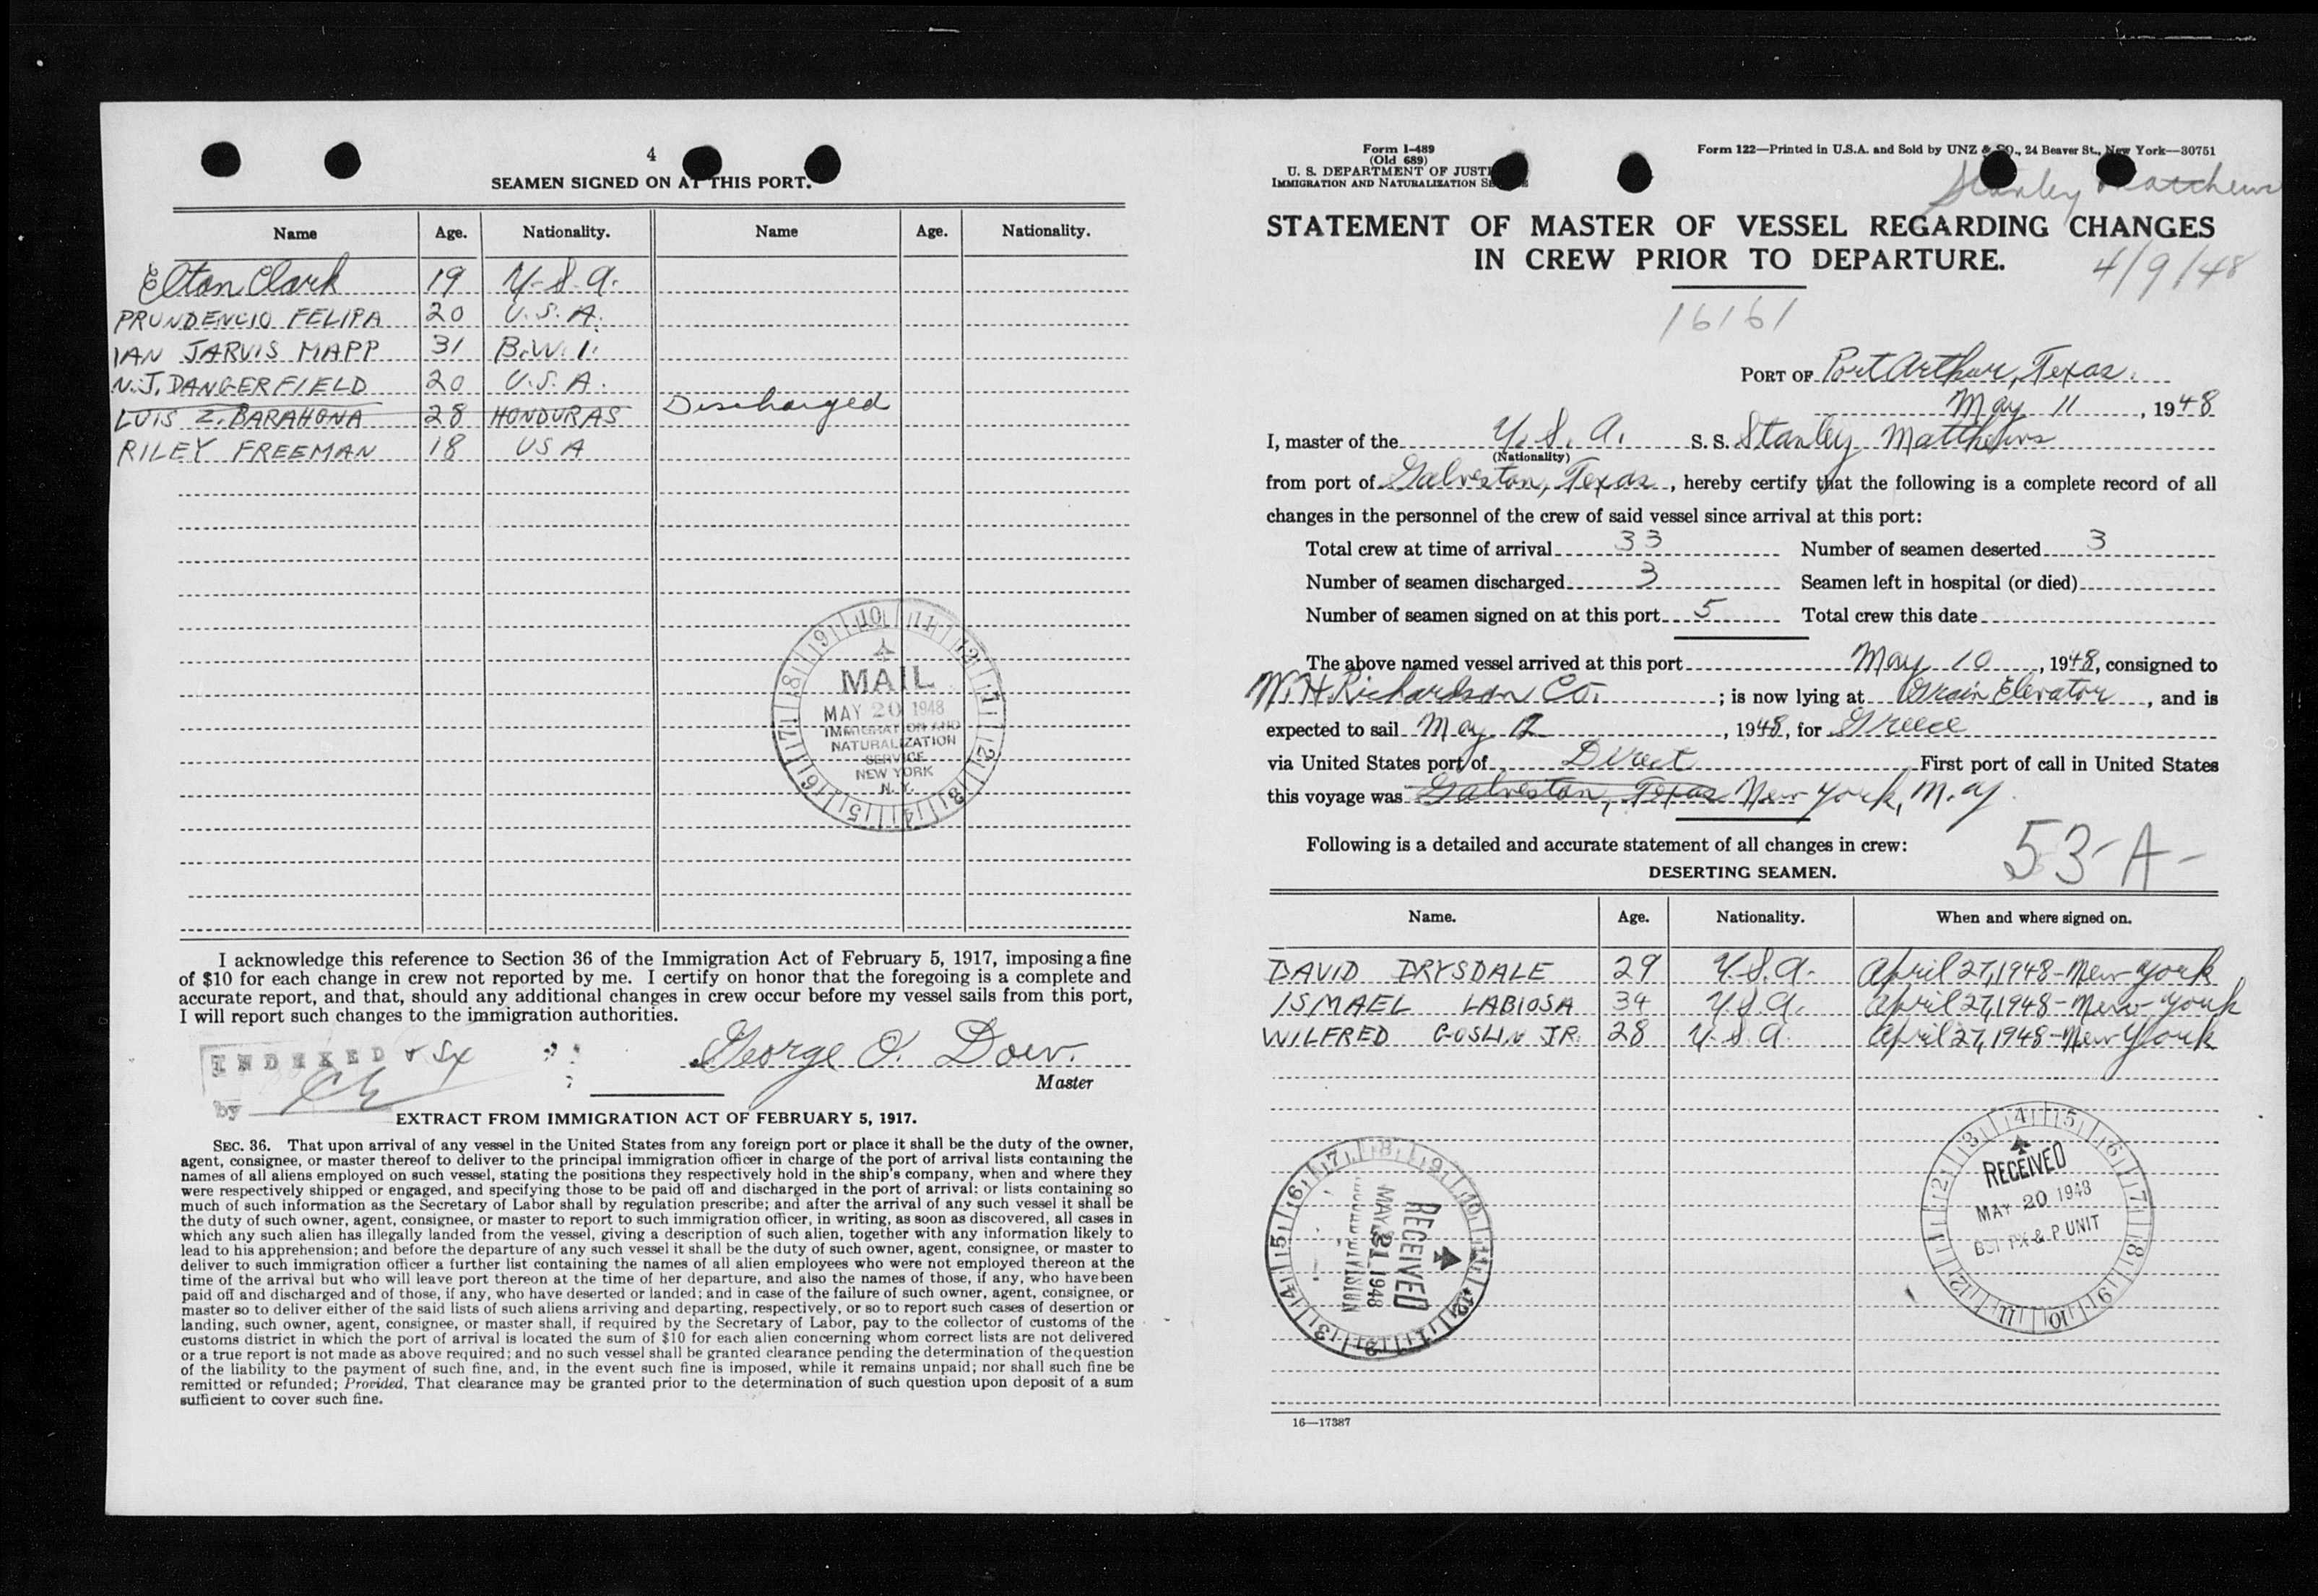 4
SEAMEN SIGNED ON AT THIS PORT.
Name Age. Nationality. Name Age. Nationality.
Elton Clark 19 U.S.A.
PRUNDENCIO FELIPA 20 U.S.A.
IAN JARVIS MAPP 31 B.W.I.
N.J. DANGERFIELD 20 U.S.A.
LUIS Z. BARAHONA 28 HONDURAS Discharged
RILEY FREEMAN 18 USA
MAIL
MAY 20 1948
IMMIGRATION AND
NATURALIZATION
SERVICE
NEW YORK
N. Y.
I acknowledge this reference to Section 36 of the Immigration Act of February 5, 1917, imposing a fine
of $10 for each change in crew not reported by me. I certify on honor that the foregoing is a complete and
accurate report, and that, should any additional changes in crew occur before my vessel sails from this port,
I will report such changes to the immigration authorities.
INDEXED
by
George O.
Master
EXTRACT FROM IMMIGRATION ACT OF FEBRUARY 5, 1917.
SEC. 36. That upon arrival of any vessel in the United States from any foreign port or place it shall be the duty of the owner,
agent, consignee, or master thereof to deliver to the principal immigration officer in charge of the port of arrival lists containing the
names of all aliens employed on such vessel, stating the positions they respectively hold in the ship's company, when and where they
were respectively shipped or engaged, and specifying those to be paid off and discharged in the port of arrival: or lists containing so
much of such information as the Secretary of Labor shall by regulation prescribe; and after the arrival of any such vessel it shall be
the duty of such owner, agent, consignee, or master to report to such immigration officer, in writing, as soon as discovered, all cases in
which any such alien has illegally landed from the vessel, giving a description of such alien, together with any information likely to
lead to his apprehension; and before the departure of any such vessel it shall be the duty of such owner, agent, consignee, or master to
deliver to such immigration officer a further list containing the names of all alien employees who were not employed thereon at the
time of the arrival but who will leave port thereon at the time of her departure, and also the names of those, if any, who have been
paid off and discharged and of those, if any, who have deserted or landed; and in case of the failure of such owner, agent, consignee, or
master so to deliver either of the said lists of such aliens arriving and departing, respectively, or so to report such cases of desertion or
landing, such owner, agent, consignee, or master shall, if required by the Secretary of Labor, pay to the collector of customs of the
customs district in which the port of arrival is located the sum of $10 for each alien concerning whom correct lists are not delivered
or a true report is not made as above required; and no such vessel shall be granted clearance pending the determination of the question
of the liability to the payment of such fine, and, in the event such fine is imposed, while it remains unpaid; nor shall such fine be
remitted or refunded; Provided, That clearance may be granted prior to the determination of such question upon deposit of a sum
sufficient to cover such fine.
Form I-489
(Old 689)
U. S. DEPARTMENT OF JUSTI
IMMIGRATION AND NATURALIZATION SE
Form 122—Printed in U.S.A. and Sold by UNZ & CO., 24 Beaver St., New York—30751
Stanley Matthews
STATEMENT OF MASTER OF VESSEL REGARDING CHANGES
IN CREW PRIOR TO DEPARTURE.
4/9/48
16161
PORT OF Port Arthur, Texas.
May 11, 1948
I, master of the U.S.A. S. S. Stanley Matthews
(Nationality)
from port of Galveston, Texas, hereby certify that the following is a complete record of all
changes in the personnel of the crew of said vessel since arrival at this port:
Total crew at time of arrival 33 Number of seamen deserted 3
Number of seamen discharged 3 Seamen left in hospital (or died)
Number of seamen signed on at this port 5 Total crew this date
The above named vessel arrived at this port May 10, 1948, consigned to
W. H. Richardson Co. ; is now lying at Grain Elevator, and is
expected to sail May 12, 1948, for Greece
via United States port of Direct First port of call in United States
this voyage was Galveston, Texas New York, N.Y.
Following is a detailed and accurate statement of all changes in crew:
53-A-
DESERTING SEAMEN.
Name. Age. Nationality. When and where signed on.
DAVID DRYSDALE 29 U.S.A. April 27, 1948-New York
ISMAEL LABIOSA 34 U.S.A. April 27, 1948-New York
WILFRED GOSLIN JR. 28 U.S.A. April 27, 1948-New York
RECEIVED
MAY 21 1948
DIVISION
RECEIVED
MAY 20 1948
P UNIT
16—17387